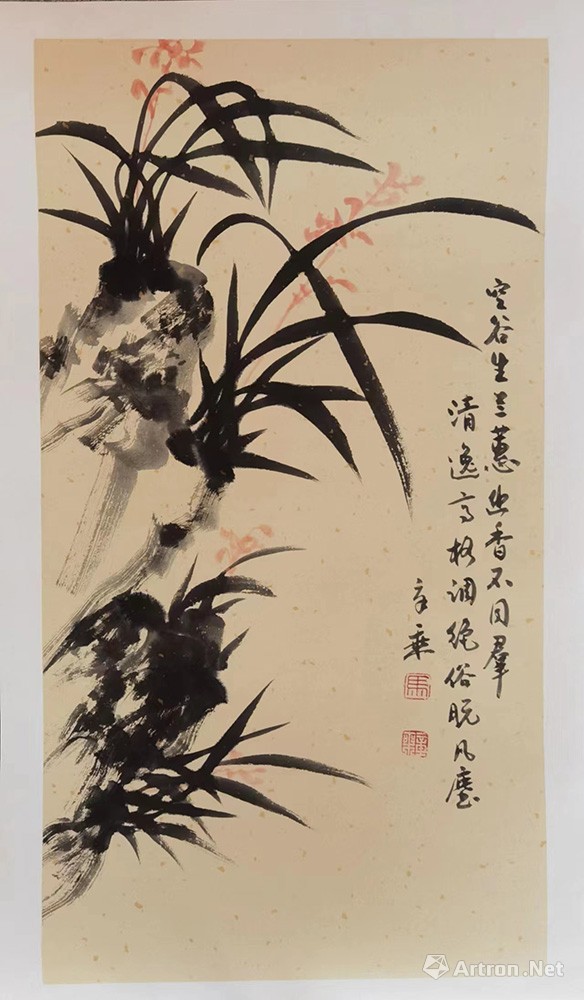 空谷生兰蕙幽香不同群
清逸高格调绝俗脱凡尘
马
Artron.Net